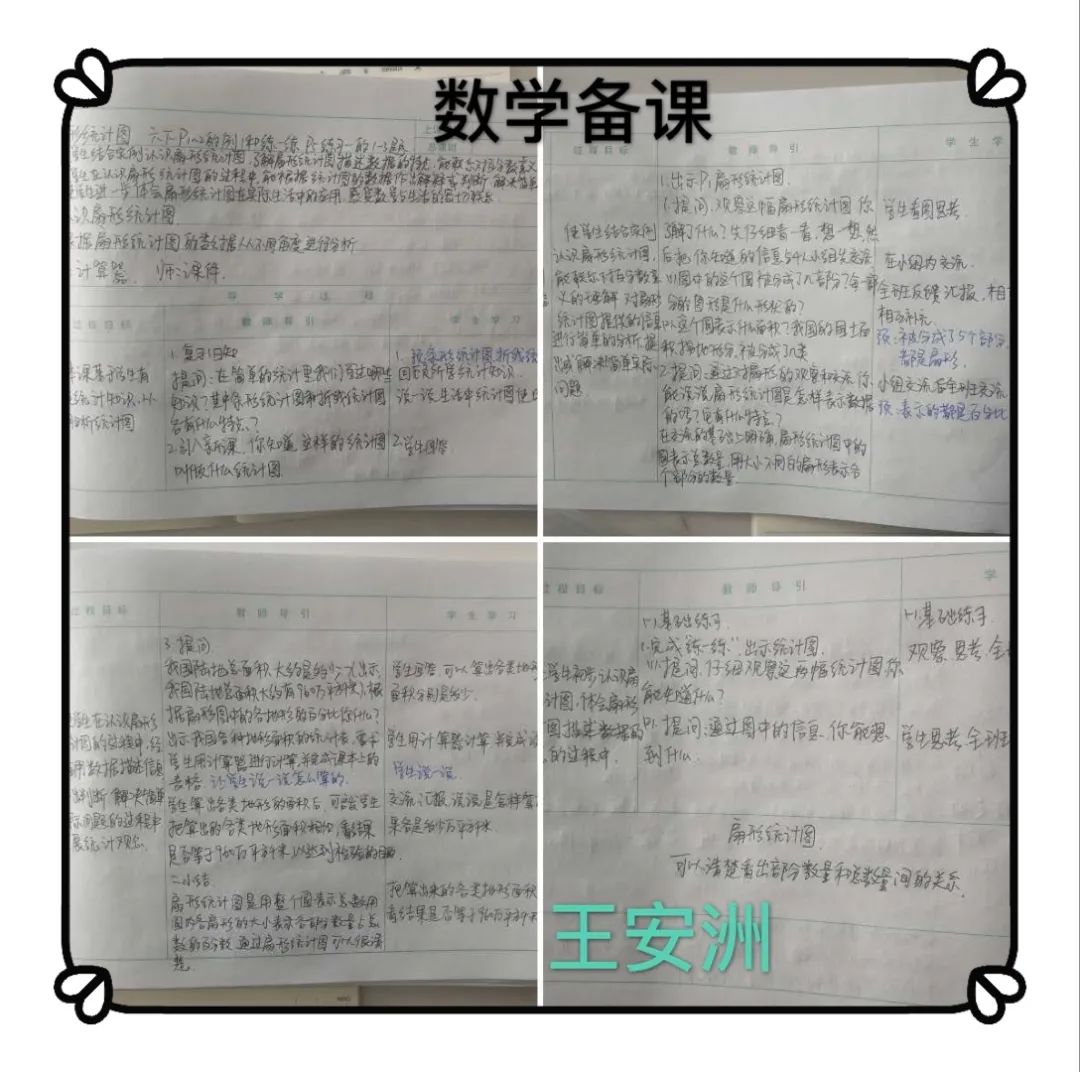 数学备课
形统计图 六下P1~2的例1和练一练 P5练习一的1~3题
学生结合实例认识扇形统计图,了解扇形统计图描述数据的特点,能联系对百分数意义
学生在认识扇形统计图的过程中,能根据统计图的数据作出解释或判断,解决简单
学生进一步体会扇形统计图在实际生活中的应用,感受数学与生活的密切联系
认识扇形统计图
根据扇形统计图的数据从不同角度进行分析
计算器 师:课件.
导学过程
过程目标 教师导引 学生学习
1.复习旧知
提问:在简单的统计里我们学过哪些
知识?其中条形统计图和折线统计图
各有什么特点?
2.引入新课,你知道,这样的统计图
叫做什么统计图.
统计知识,从
析统计图
说一说生活中统计图
2.学生回答
过程目标 教师导引 学生学
使学生结合实例
认识扇形统计图,
能联系对百分数意
义的理解,对扇形
统计图提供的信息
进行简单的分析,提
出或解决简单实际
问题.
1.出示P1扇形统计图.
提问:观察这幅扇形统计图,你
了解了什么?先仔细看一看,想一想,然
后把你知道的信息与4人小组去交流
(1)图中的这个圆被分成了几部分?每一部
分的图形是什么形状的?
(2)这个圆表示什么面积?我国的国土面
积,按地形分,被分成了几类
2.提问:通过对扇形的观察和交流,你
能说说扇形统计图是怎样表示数据
的吗?它有什么特点?
在交流的基础上明确:扇形统计图中的
圆表示总数量,用大小不同的扇形表示各
个部分的数量.
学生看图思考.
在小组内交流.
全班反馈汇报,相
相互补充.
预:被分成了5个部分
都是扇形.
小组交流后全班交流
预:表示的都是百分比
过程目标 教师导引 学生学习
学生在认识扇形
计图的过程中,经
用数据描述信息
出判断,解决简单
际问题的过程中
展统计观念.
3.提问
我国陆地总面积大约是多少?(出示
我国陆地总面积大约有960万平方千米),根
据扇形图中的各地形的百分比你什么?
出示我国各种地形面积的统计表,要求
学生用计算器进行计算,并完成课本上的
表格.让学生说一说怎么算的.
学生算出各类地形的面积后,可启发学生
把算出的各类地形面积相加,看结果
是否等于960万平方千米,以达到检验的目的.
二小结
扇形统计图是用整个圆表示总数,用
圆内各扇形的大小表示各部分数量占总
数的百分数,通过扇形统计图可以很清
楚
学生回答,可以算出各类地形
面积分别是多少.
学生用计算器计算,并完成
学生说一说.
交流汇报,说说是怎样算
果各是多少万平方千米.
把算出来的各类地形面积
看结果是否等于960万平方千米
过程目标 教师导引 学
学生初步认识扇
计图,体会扇形
图描述数据的
的过程中.
一、基础练习
1.完成"练一练",出示统计图.
(1)提问:仔细观察这两幅统计图,你
能知道什么?
(2)提问:通过图中的信息,你能想
到什么.
一、基础练习.
观察,思考,全
学生思考,全班
扇形统计图
可以清楚看出部分数量和总数量间的关系.
王安洲